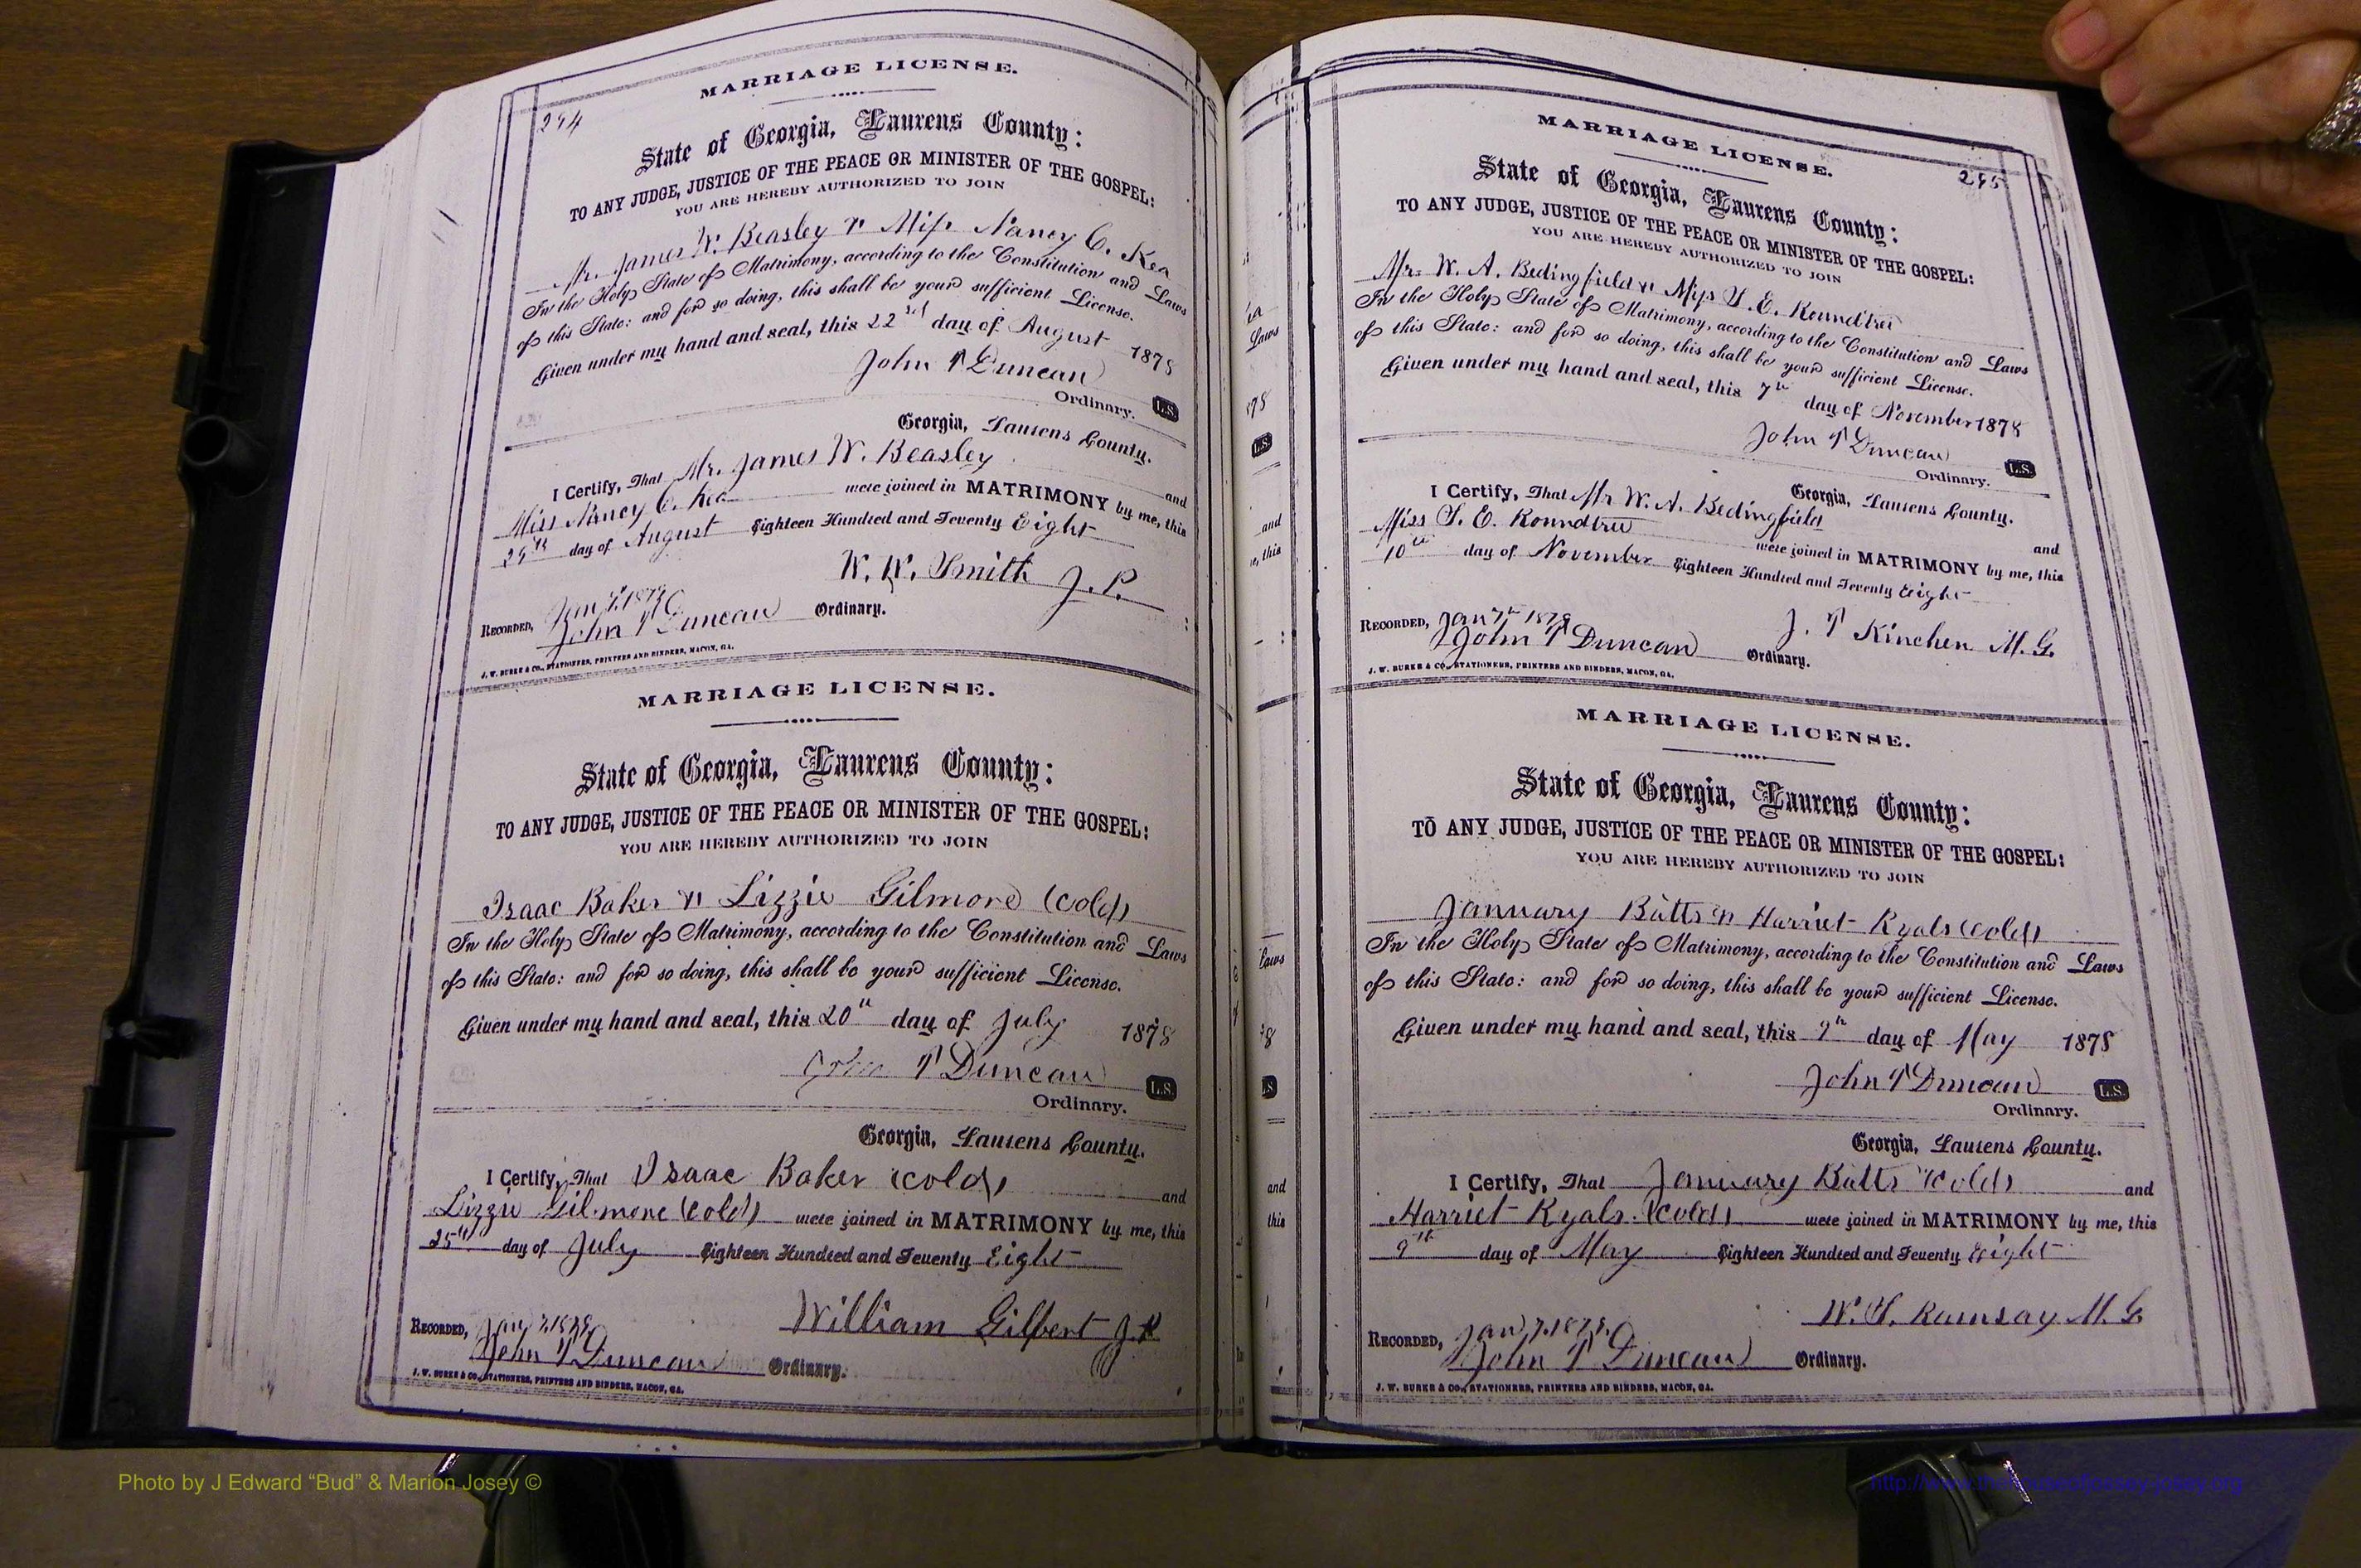 294
MARRIAGE LICENSE.
State of Georgia, Laurens County:
TO ANY JUDGE, JUSTICE OF THE PEACE OR MINISTER OF THE GOSPEL:
YOU ARE HEREBY AUTHORIZED TO JOIN
Mr. James W. Beasley & Miss Nancy C. Kea
In the Holy State of Matrimony, according to the Constitution and Laws
of this State: and for so doing, this shall be your sufficient License.
Given under my hand and seal, this 22nd day of August 1878
John T Duncan
Ordinary. L.S.
Georgia, Laurens County.
I Certify, That Mr. James W. Beasley and
Miss Nancy C. Kea were joined in MATRIMONY by me, this
29th day of August Eighteen Hundred and Seventy Eight
W. W. Smith J. P.
RECORDED, Jan 7. 1879
John T Duncan Ordinary.
J. W. BURKE & CO., STATIONERS, PRINTERS AND BINDERS, MACON, GA.
MARRIAGE LICENSE.
State of Georgia, Laurens County:
TO ANY JUDGE, JUSTICE OF THE PEACE OR MINISTER OF THE GOSPEL:
YOU ARE HEREBY AUTHORIZED TO JOIN
Isaac Baker & Lizzie Gilmore (cold)
In the Holy State of Matrimony, according to the Constitution and Laws
of this State: and for so doing, this shall be your sufficient License.
Given under my hand and seal, this 20th day of July 1878
John T Duncan
L.S.
Ordinary.
Georgia, Laurens County.
I Certify, That Isaac Baker (cold) and
Lizzie Gilmore (cold) were joined in MATRIMONY by me, this
25th day of July Eighteen Hundred and Seventy Eight
William Gilbert J. P.
RECORDED, Jan 7. 1879
John T Duncan Ordinary.
J. W. BURKE & CO., STATIONERS, PRINTERS AND BINDERS, MACON, GA.
Laws
878
L.S.
and
this
Laws
L.S.
and
this
295
MARRIAGE LICENSE.
State of Georgia, Laurens County:
TO ANY JUDGE, JUSTICE OF THE PEACE OR MINISTER OF THE GOSPEL:
YOU ARE HEREBY AUTHORIZED TO JOIN
Mr. W. A. Bedingfield & Miss S. E. Roundtree
In the Holy State of Matrimony, according to the Constitution and Laws
of this State: and for so doing, this shall be your sufficient License.
Given under my hand and seal, this 7th day of November 1878
John T Duncan
Ordinary. L.S.
Georgia, Laurens County.
I Certify, That Mr W. A. Bedingfield and
Miss S. E. Roundtree were joined in MATRIMONY by me, this
10th day of November Eighteen Hundred and Seventy Eight
J. T Kinchen M. G.
RECORDED, Jan 7th 1879
John T Duncan Ordinary.
J. W. BURKE & CO., STATIONERS, PRINTERS AND BINDERS, MACON, GA.
MARRIAGE LICENSE.
State of Georgia, Laurens County:
TO ANY JUDGE, JUSTICE OF THE PEACE OR MINISTER OF THE GOSPEL:
YOU ARE HEREBY AUTHORIZED TO JOIN
January Butts & Harriet Ryals (cold)
In the Holy State of Matrimony, according to the Constitution and Laws
of this State: and for so doing, this shall be your sufficient License.
Given under my hand and seal, this 9th day of May 1878
John T Duncan L.S.
Ordinary.
Georgia, Laurens County.
I Certify, That January Butts (cold) and
Harriet Ryals (cold) were joined in MATRIMONY by me, this
9th day of May Eighteen Hundred and Seventy Eight
W. S. Ramsay M. G
RECORDED, Jan 7. 1879.
John T Duncan Ordinary.
J. W. BURKE & CO., STATIONERS, PRINTERS AND BINDERS, MACON, GA.
Photo by J Edward “Bud” & Marion Josey ©